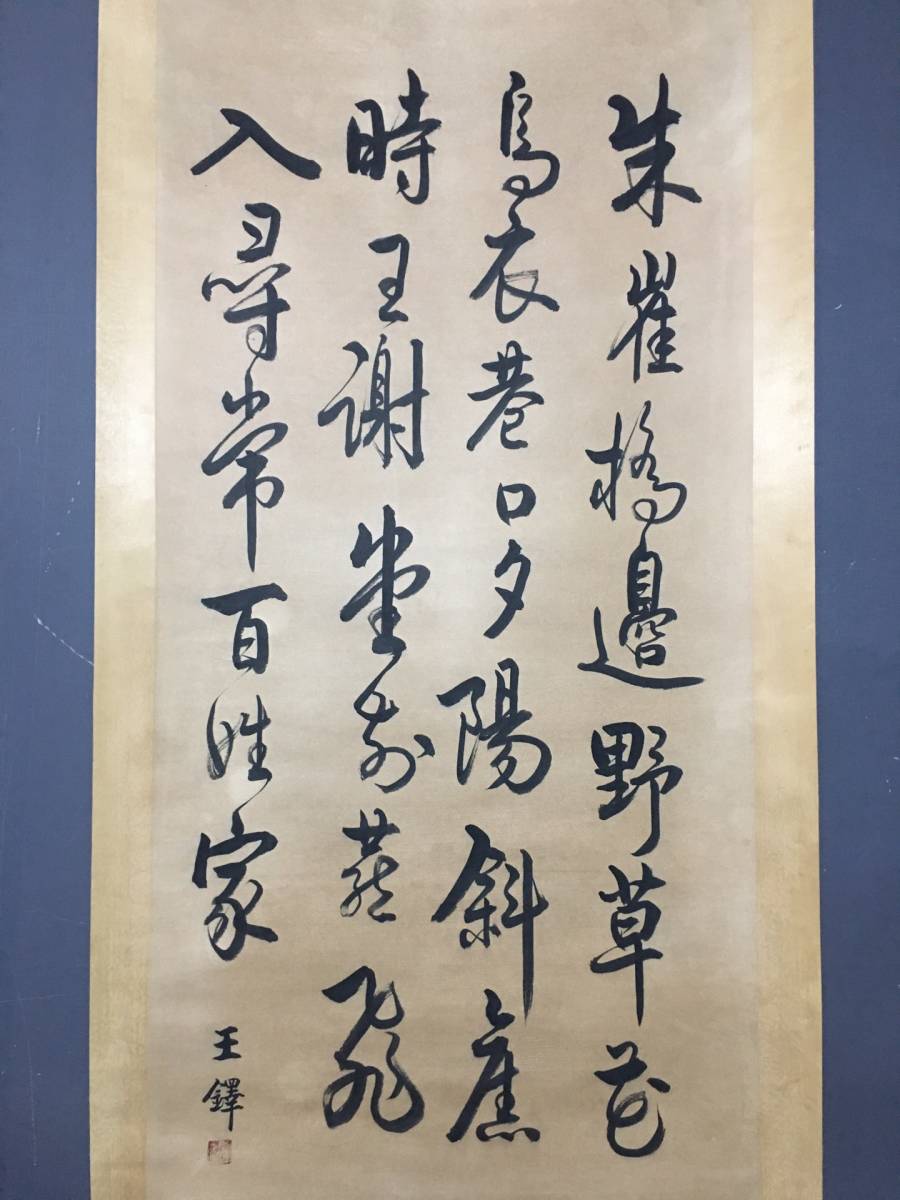 朱崔橋邊野草花
烏衣巷口夕陽斜舊
時王謝堂前燕飛
入尋常百姓家
王鐸